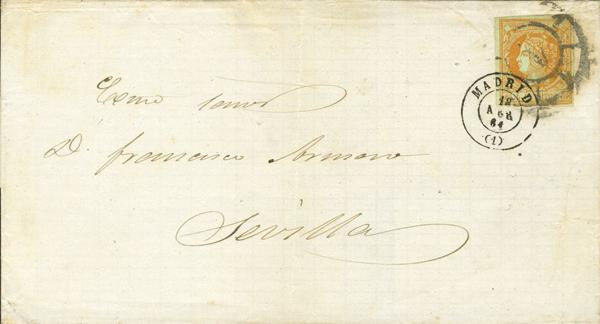 Exmo Señor
D. Francisco Armero
Sevilla
MADRID
18
ABR
61
(1)